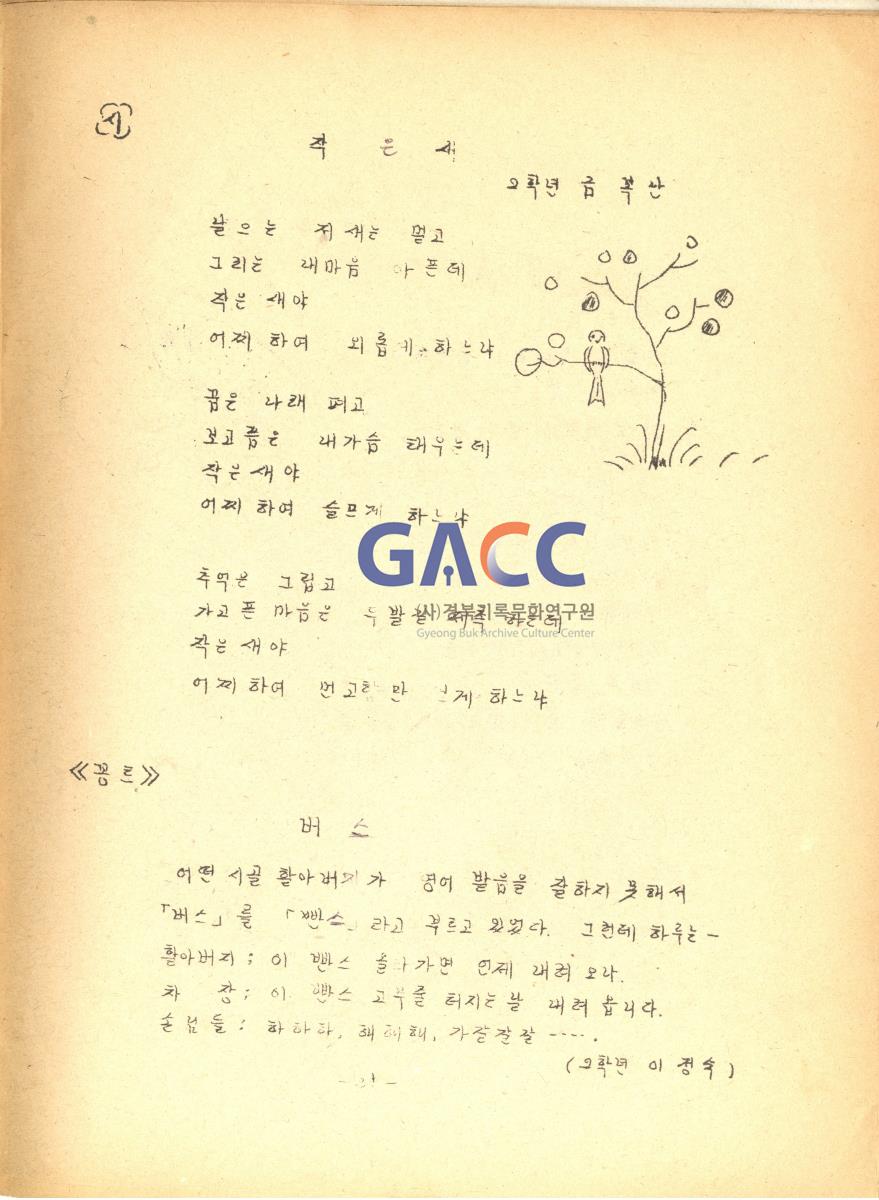 시
작은 새
2학년 금 복 산
날으는 저 새는 멀고
그리는 내마음 아픈데
작은 새야
어찌 하여 외롭게 하느냐
꿈은 나래 펴고
보고픔은 내가슴 태우는데
작은 새야
어찌 하여 슬프게 하느냐
추억은 그립고
가고픈 마음은 두발을 하는데
작은 새야
어찌 하여 먼고향만 하느냐
GACC
(사)경북기록문화연구원
Gyeong Buk Archive Culture Center
≪꽁트≫
버 스
어떤 시골 할아버지가 영어 발음을 잘하지 못해서
「버스」를 「빤스」라고 부르고 있었다. 그런데 하루는 –
할아버지 ; 이 빤스 올라가면 언제 내려 오나.
차 장 ; 이 빤스 고무줄 터지는날 내려 옵니다.
손님들 : 하하하, 해해해, 가잘잘잘 ----.
(2학년 이 정숙)